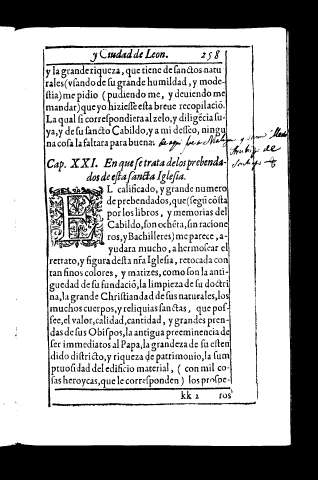 y Ciudad de Leon. 258
y la grande riqueza, que tiene de sanctos natu
rales (vsando de su grande humildad, y mode-
stia) me pidio (pudiendo me, y deuiendo me
mandar) que yo hiziesse esta breue recopilació.
La qual si correspondiera al zelo, y diligécia su-
ya, y de su sancto Cabildo, y a mi desseo, ningu
na cosa la faltara para buena.
Cap. XXI. En que se trata de los prebenda-
dos de esta sancta Iglesia.
EL calificado, y grande numero
de prebendados, que (segú cósta
por los libros, y memorias del
Cabildo, son ochéta, sin racione
ros, y Bachilleres) me parece, a-
yudara mucho, a hermosear el
retrato, y figura desta nr̃a Iglesia, retocada con
tan finos colores, y matizes, como son la anti-
guedad de su fundació, la limpieza de su doctri
na, la grande Christiandad de sus naturales, los
muchos cuerpos, y reliquias sanctas, que pos-
see, el valor, calidad, cantidad, y grandes pren-
das de sus Obispos, la antigua preeminencia de
ser immediatos al Papa, la grandeza de su esten
dido districto, y riqueza de patrimonio, la sum
ptuosidad del edificio material, (con mil co-
sas heroycas, que le corresponden) los prospe-
kk 2 ros